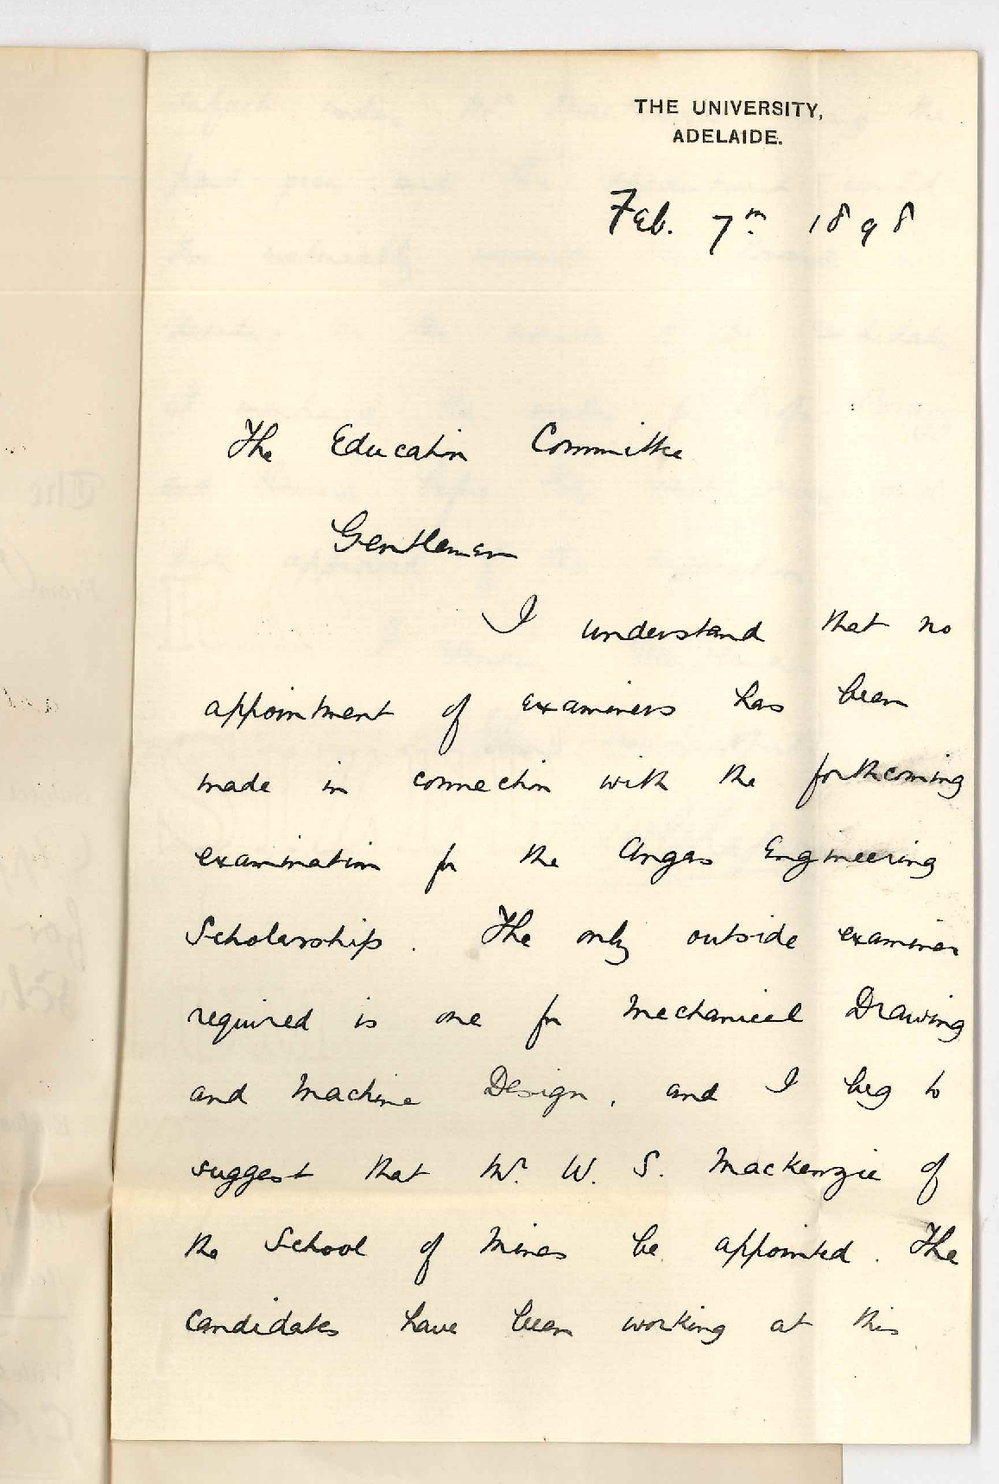 THE UNIVERSITY,
ADELAIDE.
Feb. 7th 1898
The Education Committee
Gentlemen
I understand that no
appointment of examiners has been
made in connection with the forthcoming
examination for the Angas Engineering
Scholarship. The only outside examiner
required is one for Mechanical Drawing
and Machine Design, and I beg to
suggest that Mr. W. S. Mackenzie of
the School of Mines be appointed. The
candidates have been working at this